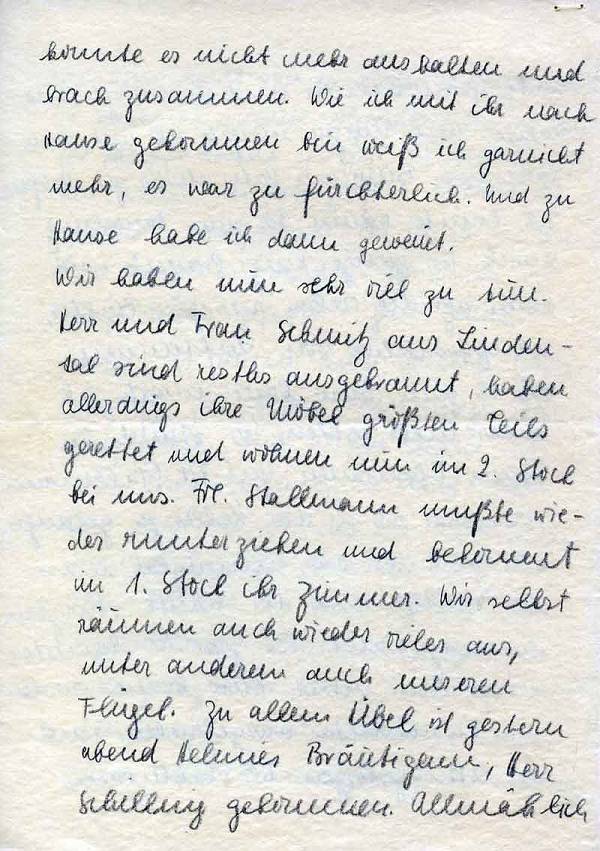 konnte es nicht mehr aushalten und
brach zusammen. Wie ich mit ihr nach
Hause gekommen bin weiß ich garnicht
mehr, es war zu fürchterlich. Und zu
Hause habe ich dann geweint.
Wir haben nun sehr viel zu tun.
Herr und Frau Schmitz aus Linden-
tal sind restlos ausgebrannt, haben
allerdings ihre Möbel größten Teils
gerettet und wohnen nun im 2. Stock
bei uns. Frl. Stallmann mußte wie-
der runterziehen und bekommt
im 1. Stock ihr Zimmer. Wir selbst
räumen auch wieder vieles aus,
unter anderem auch unseren
Flügel. Zu allem Übel ist gestern
abend Helmes Bräutigam, Herr
Schilling gekommen. Allmählich